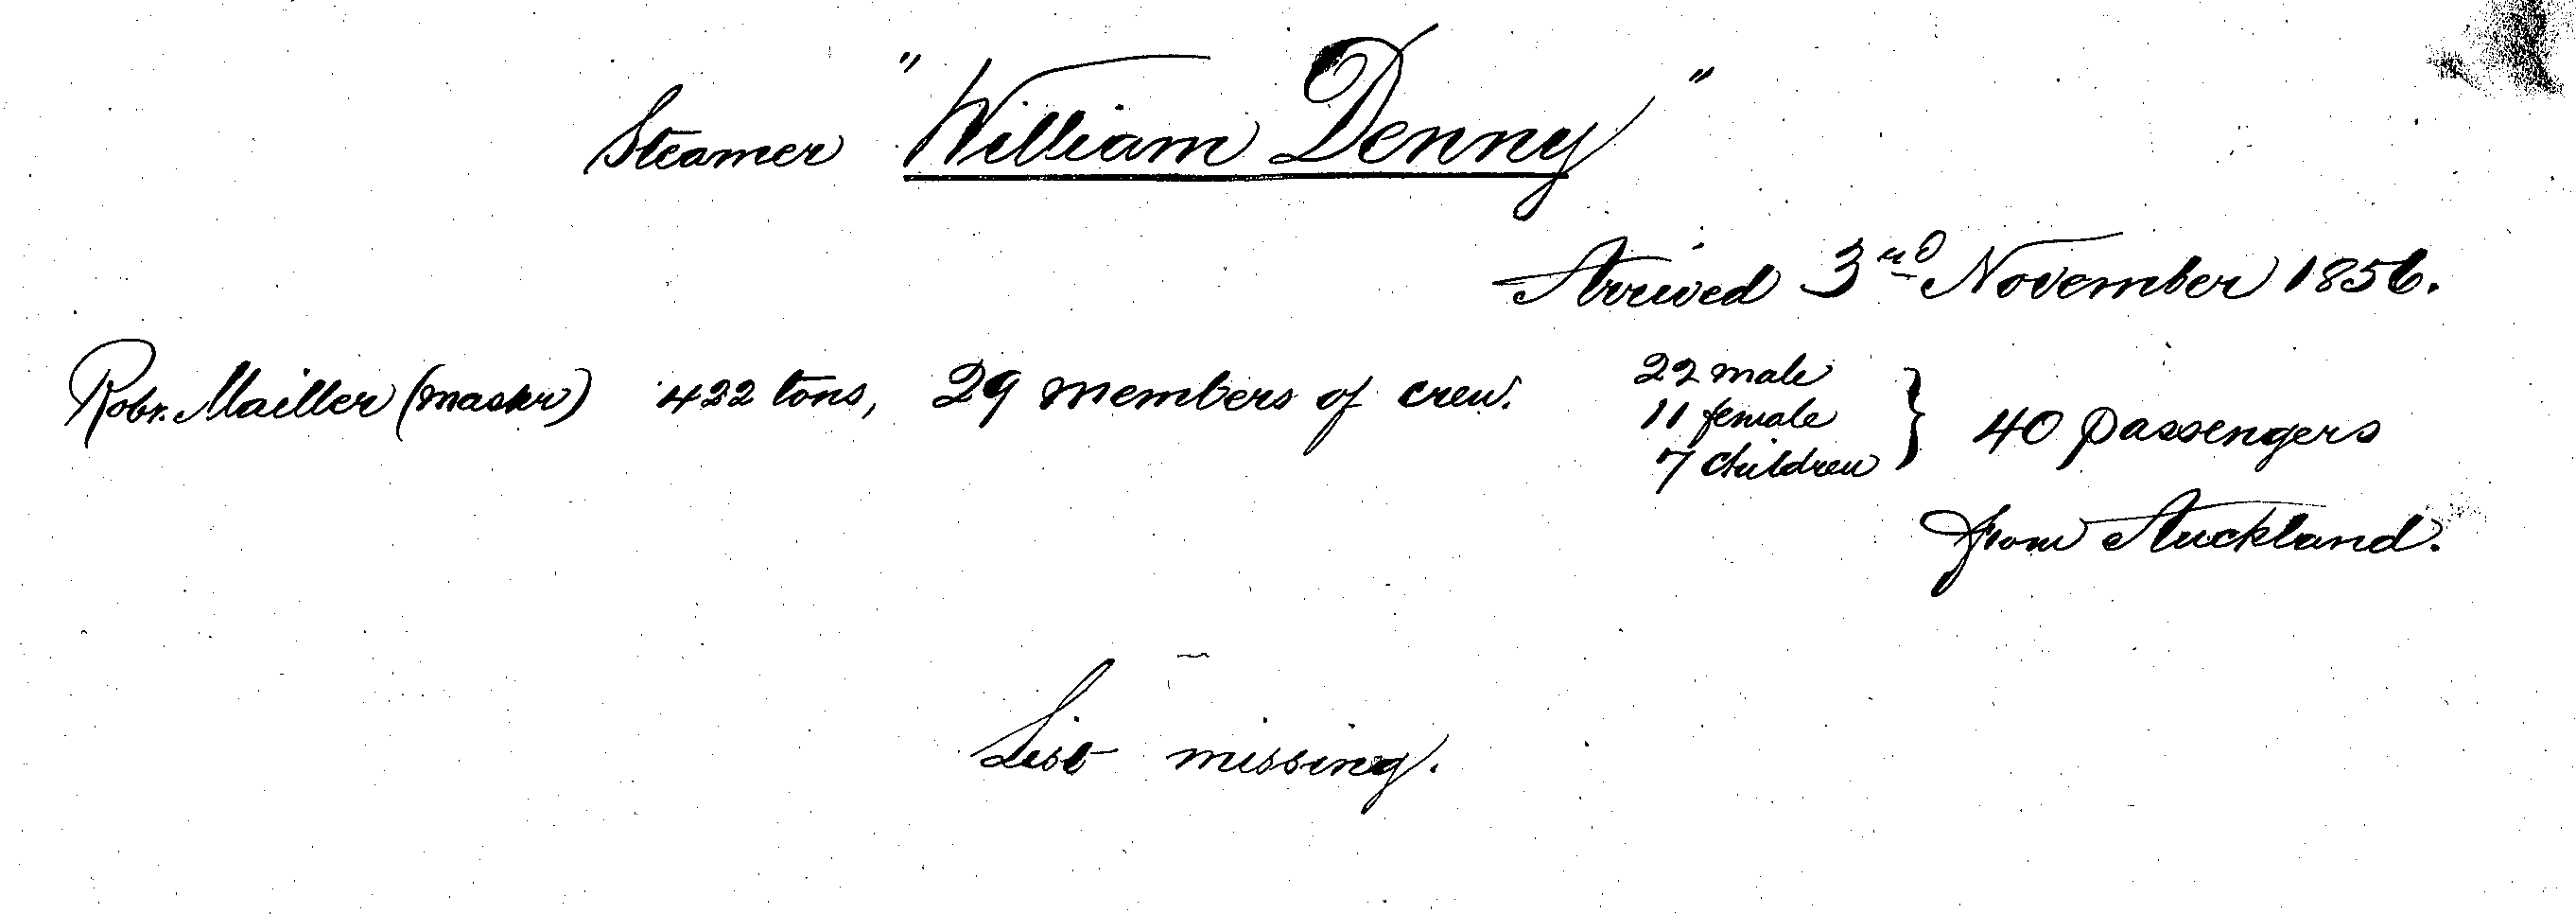 Steamer "William Denny"
Arrived 3rd November 1856.
Robt. Mailler (master) 422 tons, 29 members of crew.
22 male
11 female
7 children
} 40 passengers
from Auckland.
List missing.